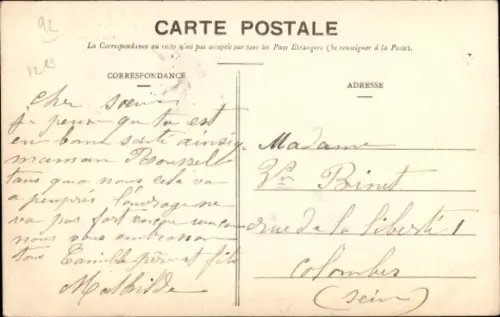 92
CARTE POSTALE
La Correspondance au recto n'est pas acceptée par tous les Pays Étrangers (Se renseigner à la Poste).
CORRESPONDANCE
ADRESSE
Cher
que tu est
en bone santé ainsique
maman Roussel
qua nous cela va
a peuprés louvrage ne
va pas fort encore
nous vous embrason
tous Camille
Mathilde
Madame
Binet
rue de la liberté 1
Colombes
(Seine)